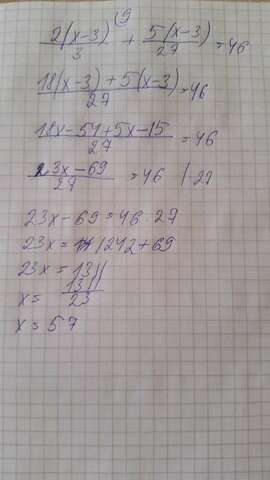 2(x-3)/3 (9 + 5(x-3)/27 = 46
18(x-3)+5(x-3)/27 = 46
18x-54+5x-15/27 = 46
23x-69/27 = 46 | ·27
23x-69=46·27
23x = 1242+69
23x = 1311
x = 1311/23
x = 57